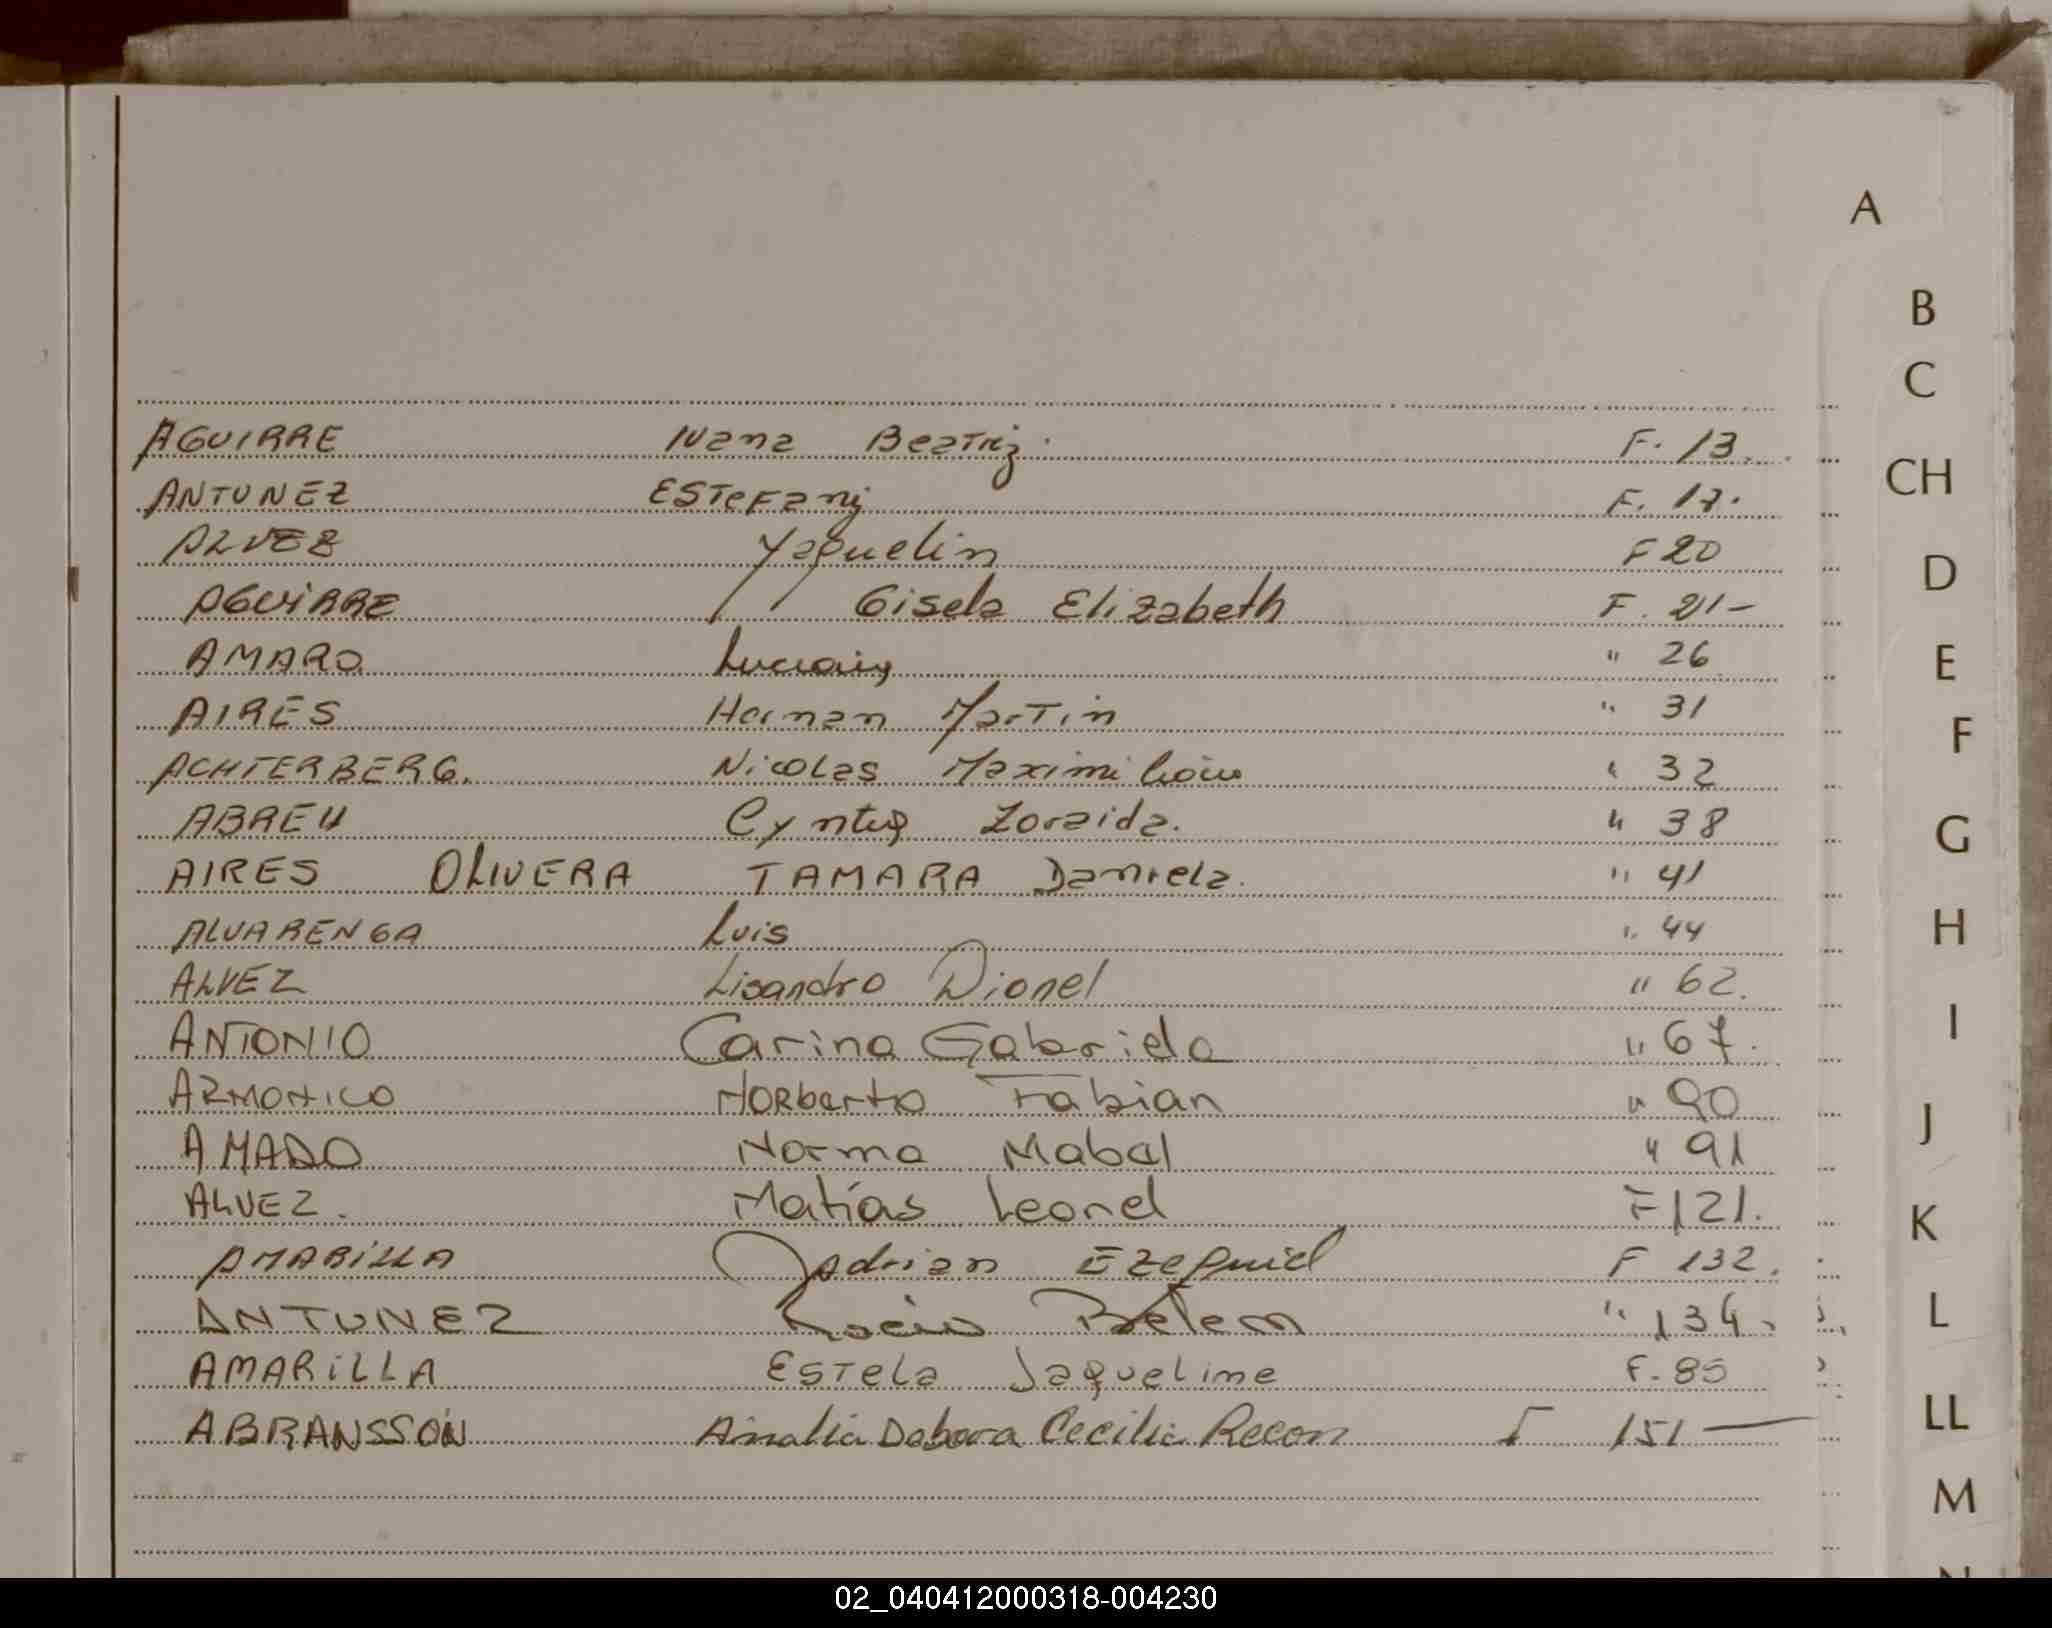 A
B
C
AGUIRRE Ivana Beatriz. F. 13.
CH
ANTUNEZ Estefany F. 17.
ALVEZ Yaquelin F 20
D
AGUIRRE Gisela Elizabeth F. 21-
AMARO " 26
E
AIRES Hernan Martin " 31
F
ACHTERBERG. Nicolas Maximiliano " 32
ABREU Zoraida. " 38
G
AIRES OLIVERA TAMARA Daniela. " 41
ALVARENGA Luis " 44
H
ALVEZ Lisandro Dionel " 62.
I
ANTONIO Carina Gabriela " 67.
ARMONICO Norberto Fabian " 90
J
AMADO Norma Mabel " 91
ALVEZ. Matías Leonel F 121.
K
AMARILLA Adrian Ezequiel F 132.
L
ANTUNEZ Rocio Belem " 134.
AMARILLA Estela Jaqueline F. 85
LL
ABRANSSON Debora Cecilia 151 —
M
02_040412000318-004230